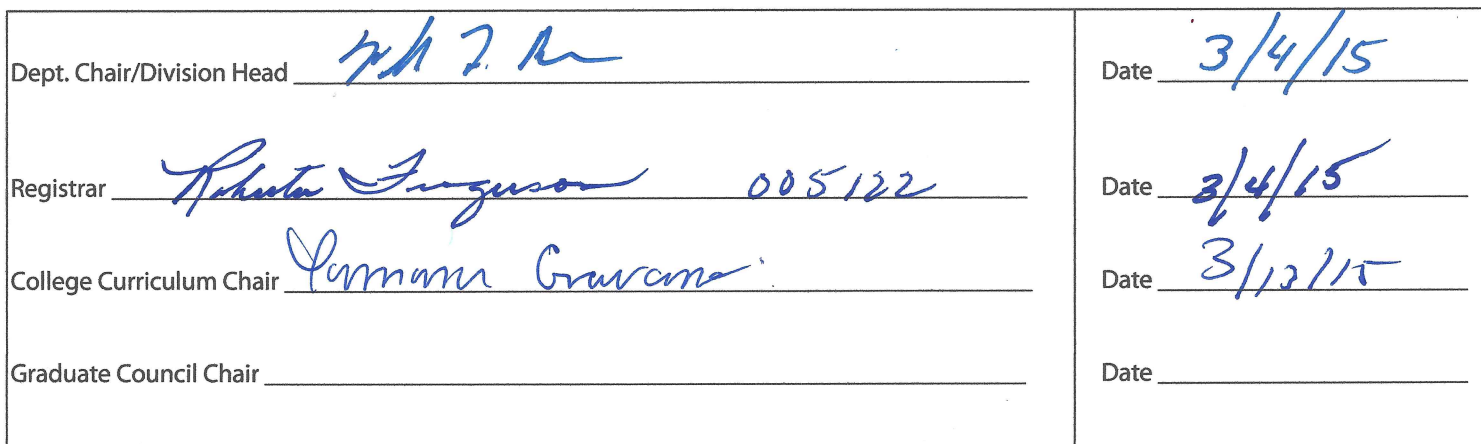 Dept. Chair/Division Head Date 3/4/15
Registrar Roberta Ferguson 005122 Date 3/4/15
College Curriculum Chair Date 3/13/15
Graduate Council Chair Date